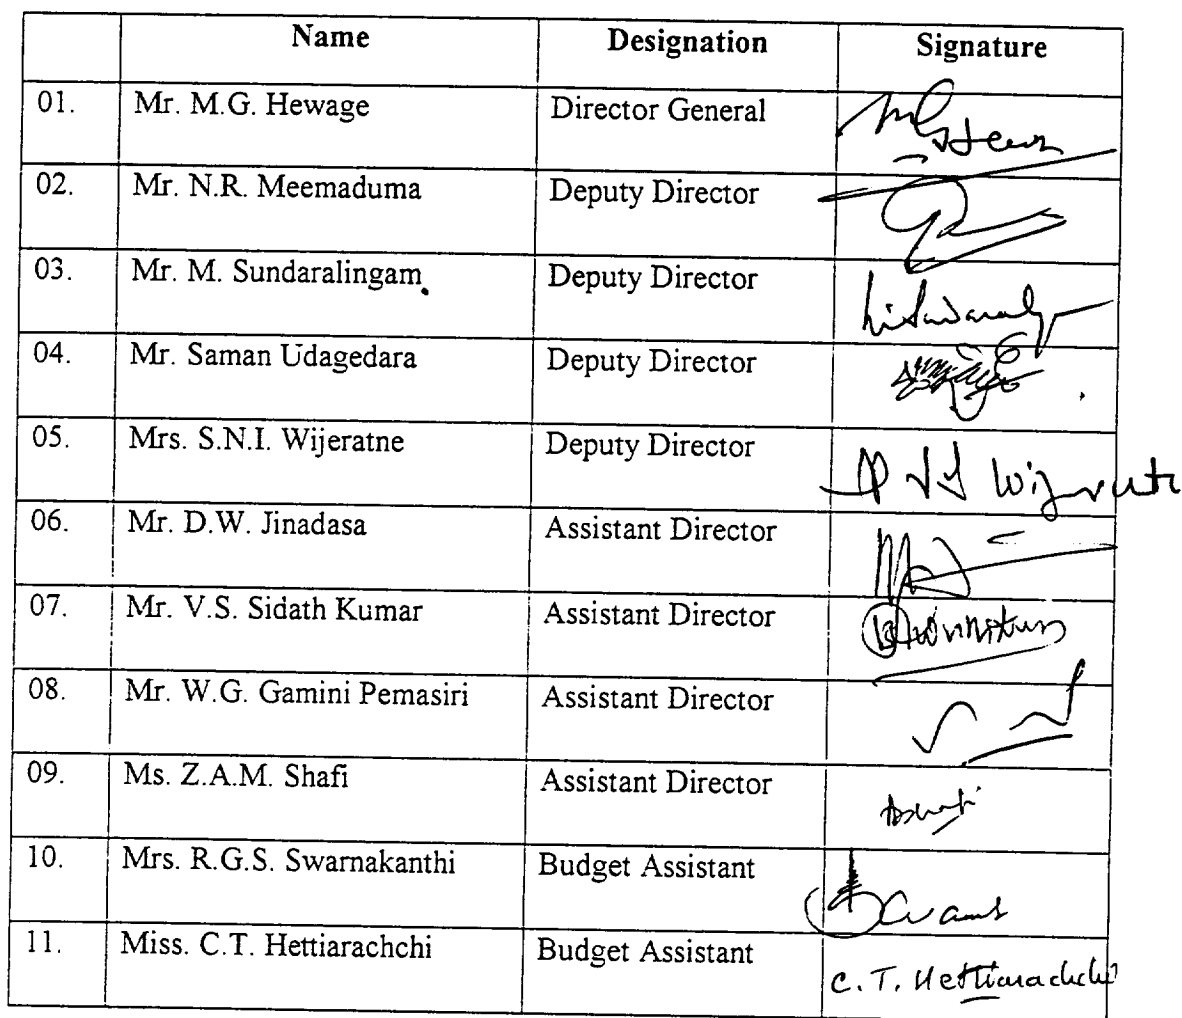 Name Designation Signature
01. Mr. M.G. Hewage Director General
02. Mr. N.R. Meemaduma Deputy Director
03. Mr. M. Sundaralingam Deputy Director
04. Mr. Saman Udagedara Deputy Director
05. Mrs. S.N.I. Wijeratne Deputy Director
06. Mr. D.W. Jinadasa Assistant Director
07. Mr. V.S. Sidath Kumar Assistant Director
08. Mr. W.G. Gamini Pemasiri Assistant Director
09. Ms. Z.A.M. Shafi Assistant Director
10. Mrs. R.G.S. Swarnakanthi Budget Assistant
11. Miss. C.T. Hettiarachchi Budget Assistant C. T. Hettiarachchi